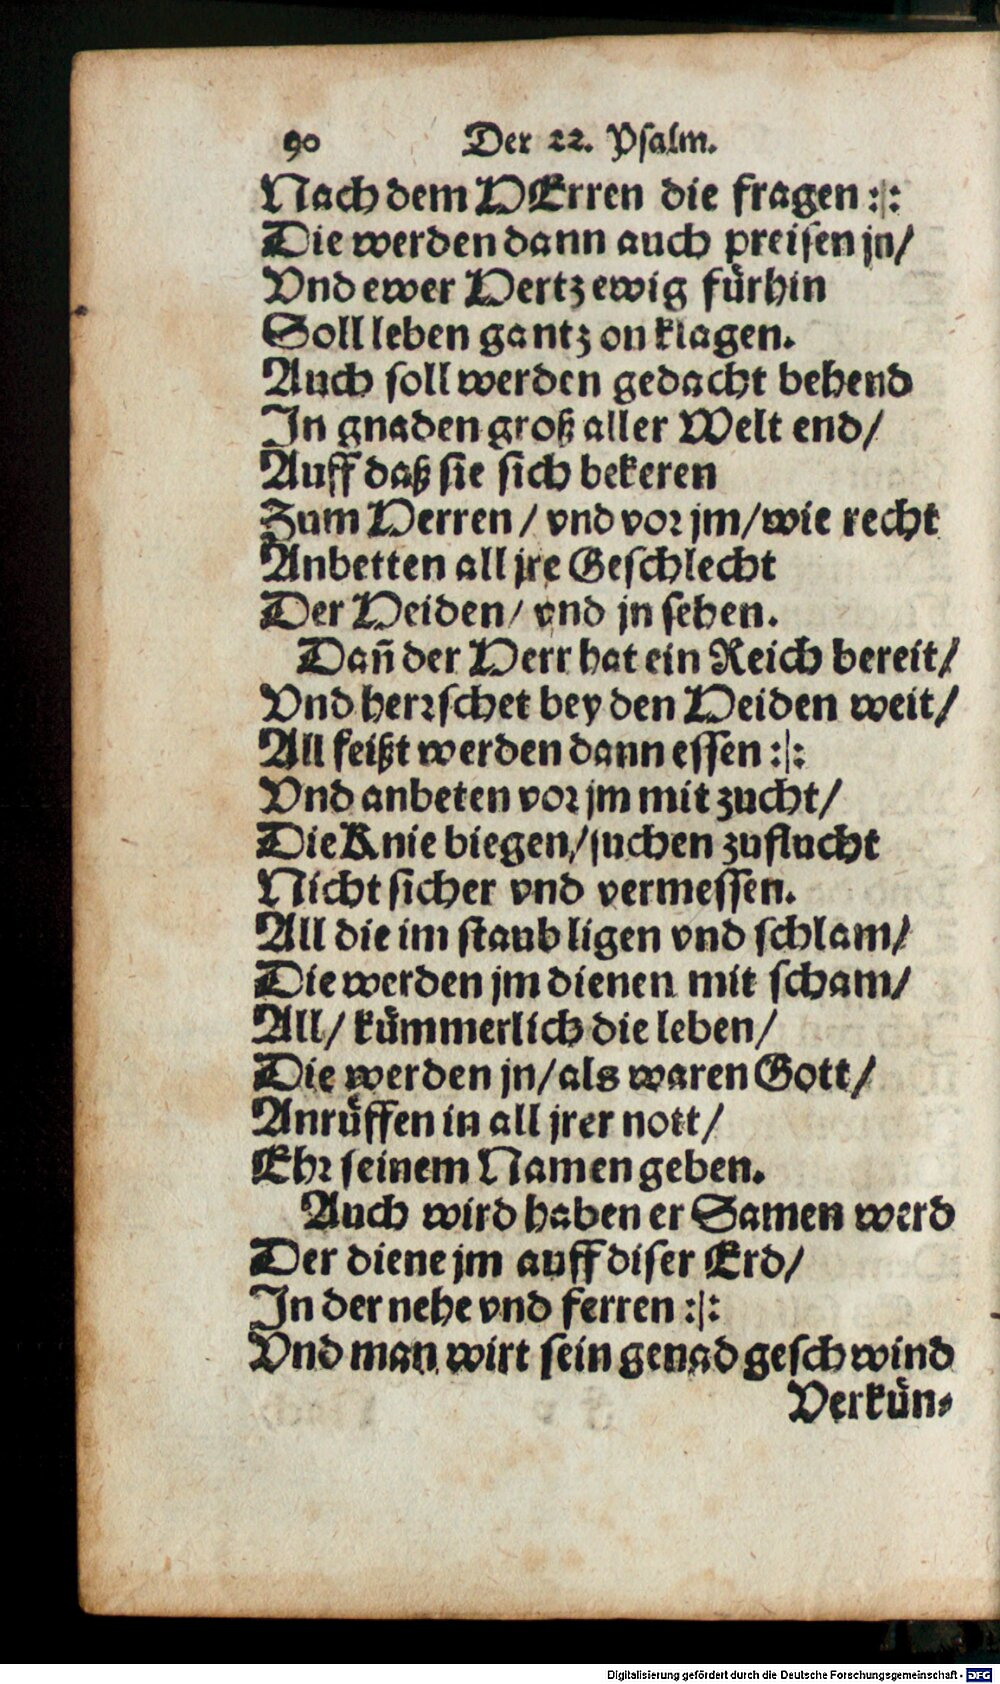 90 Der 22. Psalm.
Nach dem HErren die fragen :|:
Die werden dann auch preisen jn/
Vnd ewer Hertz ewig fürhin
Soll leben gantz on klagen.
Auch soll werden gedacht behend
In gnaden groß aller Welt end/
Auff daß sie sich bekeren
Zum Herren / vnd vor jm / wie recht
Anbetten all jre Geschlecht
Der Heiden / vnd jn sehen.
Dañ der Herr hat ein Reich bereit/
Vnd herrschet bey den Heiden weit/
All feißt werden dann essen :|:
Vnd anbeten vor jm mit zucht/
Die Knie biegen / suchen zuflucht
Nicht sicher vnd vermessen.
All die im staub ligen vnd schlam/
Die werden jm dienen mit scham/
All / kümmerlich die leben/
Die werden jn / als waren Gott/
Anrüffen in all jrer nott/
Ehr seinem Namen geben.
Auch wird haben er Samen werd
Der diene jm auff diser Erd/
In der nehe vnd ferren :|:
Vnd man wirt sein genad geschwind
Verkün-
Digitalisierung gefördert durch die Deutsche Forschungsgemeinschaft - DFG